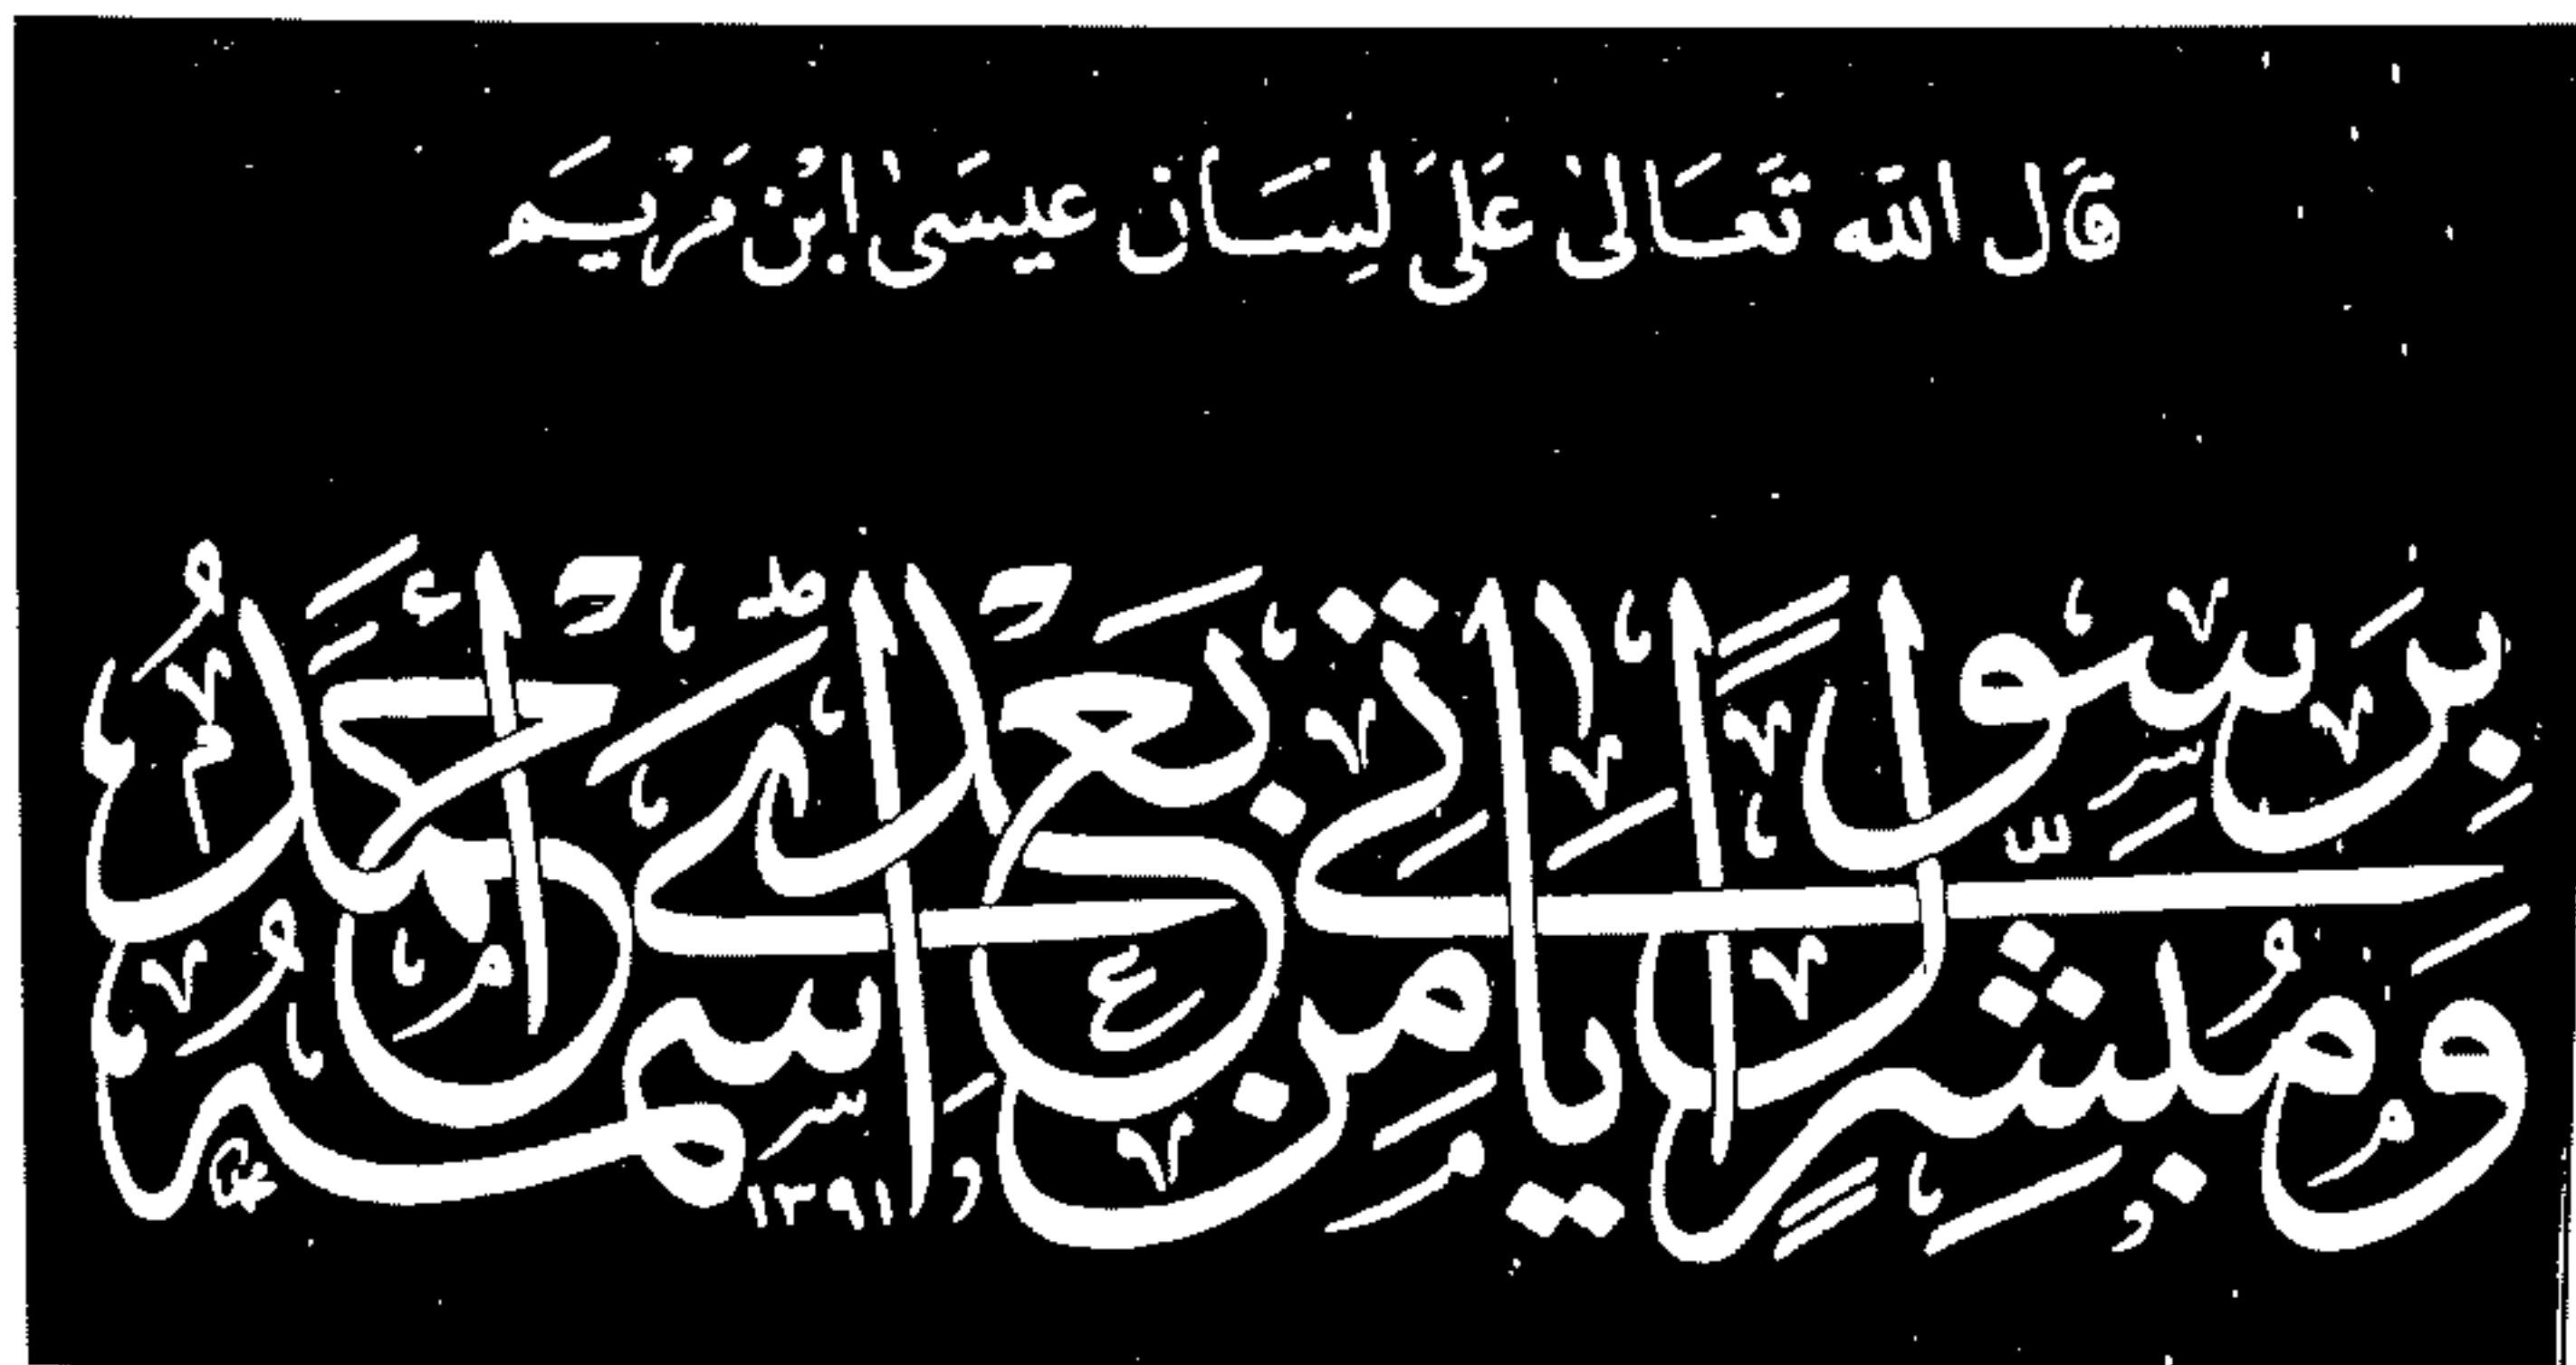 قَال اللّه تَعَالىٰ عَلىَ لِسَان عيسَىٰ ابْن مَرْيَم
وَمُبَشِّرًا بِرَسُولٍ يَأْتِي مِنْ بَعْدِي اسْمُهُ أَحْمَدُ
١٣٩١